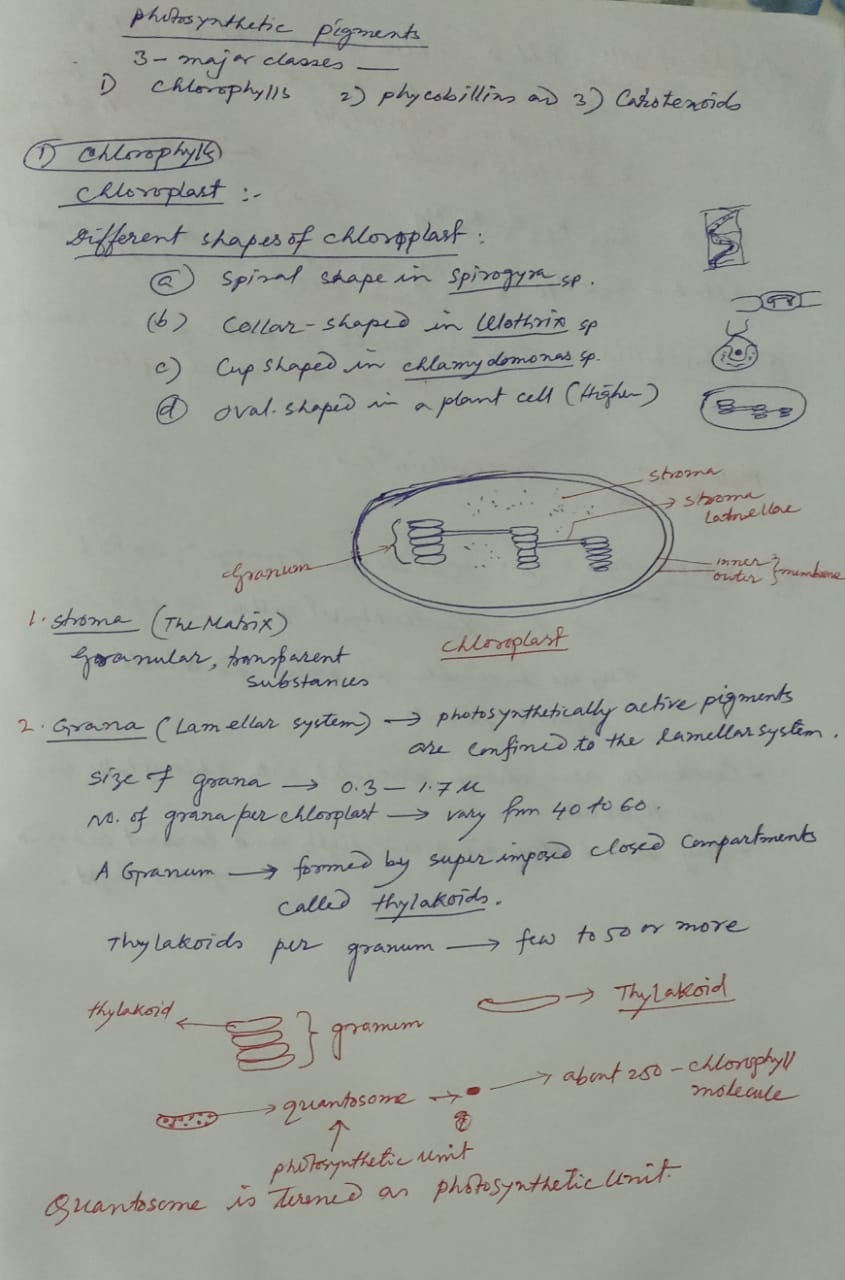 photosynthetic pigments
3 - major classes —
1) Chlorophylls 2) phycobillins and 3) Carotenoids
① Chlorophylls
Chloroplast :-
Different shapes of chloroplast :
(a) Spiral shape in Spirogyra sp.
(b) Collar-shaped in Ulothrix sp
c) Cup shaped in chlamydomonas sp.
(d) oval-shaped in a plant cell (Higher)
stroma
stroma
lamellae
Granum
inner
outer } membrane
Chloroplast
1. Stroma (The Matrix)
granular, transparent
substances
2. Grana (Lamellar system) → photosynthetically active pigments
are confined to the lamellar system.
Size of grana → 0.3 – 1.7 µ
No. of grana per chloroplast → vary from 40 to 60.
A Granum → formed by super imposed closed compartments
called thylakoids.
Thylakoids per granum → few to 50 or more
thylakoid ← } granum
→ Thylakoid
→ quantosome → → about 250 - chlorophyll
molecule
↑
photosynthetic unit
Quantosome is termed as photosynthetic unit.